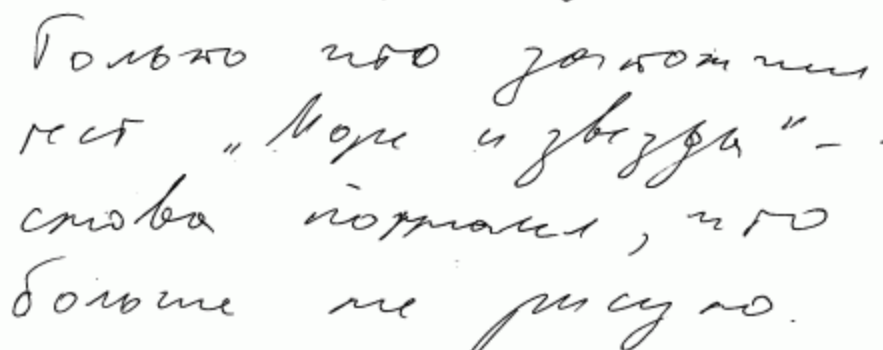 Только что закончил
тест „Море и звезды“ –
снова понял, что
больше не рисую.